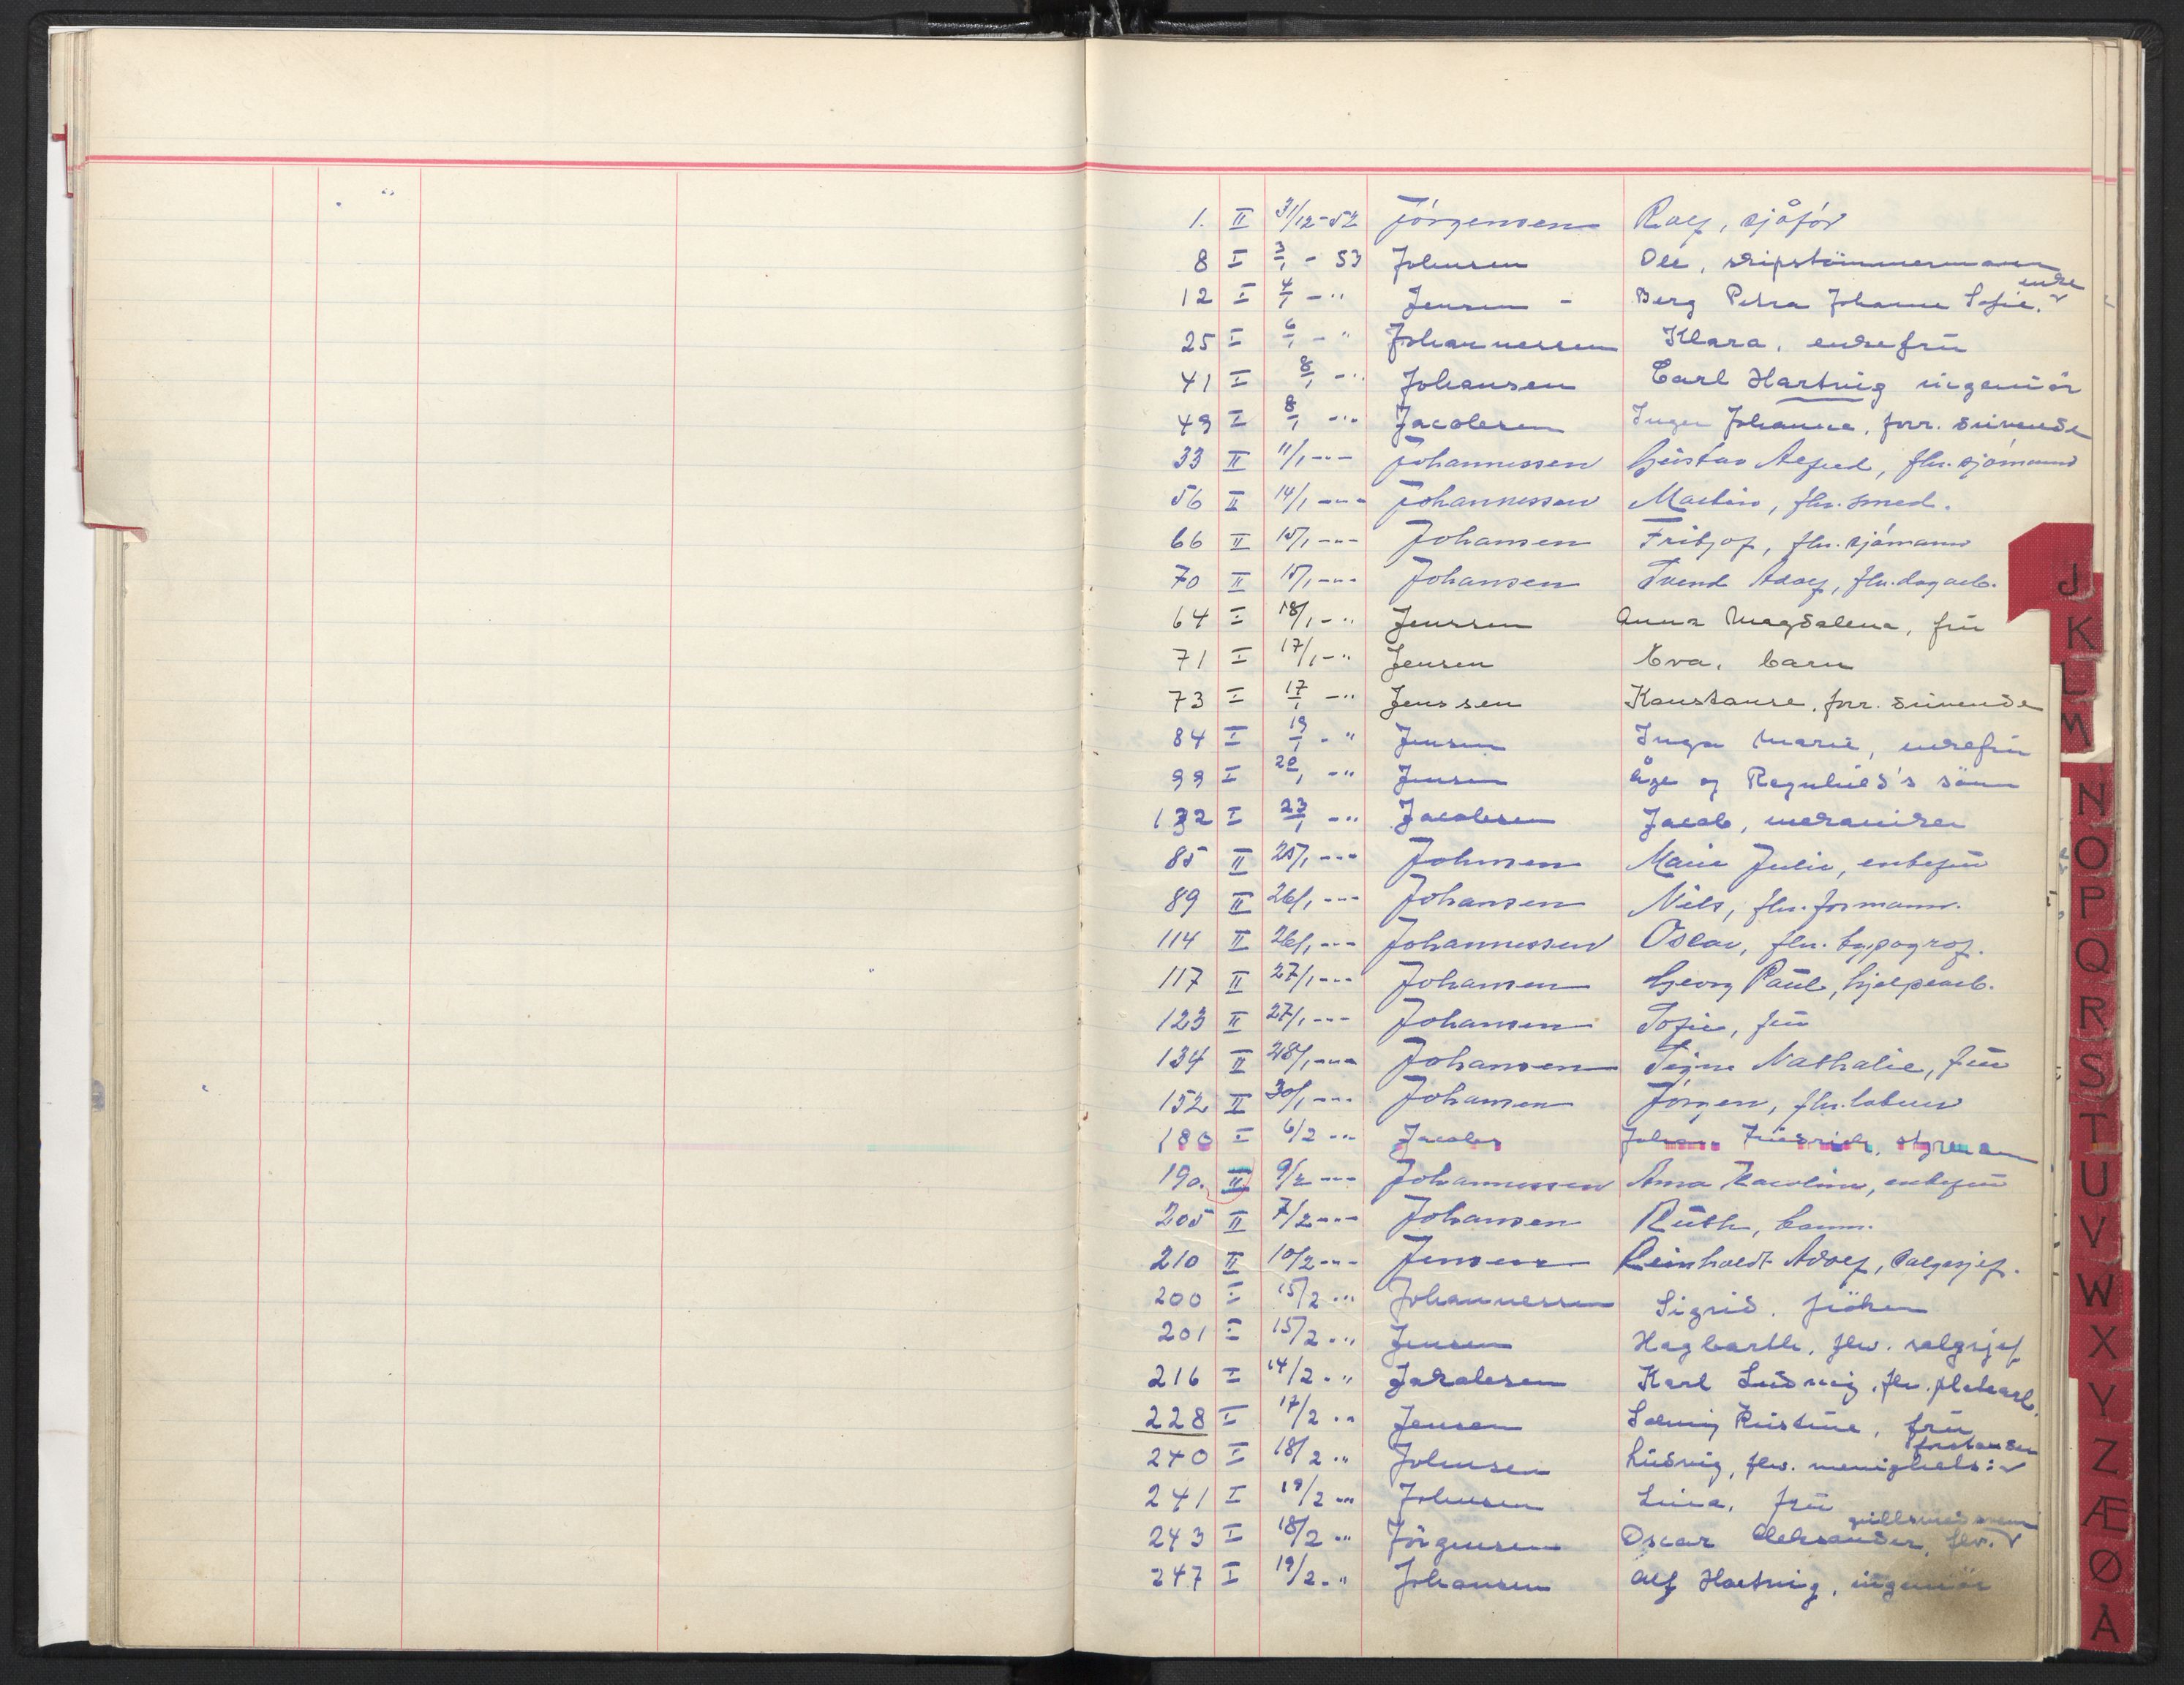 1. II 31/12-52 Jörgensen Rolf, sjåför
8 I 3/1 - 53 Johnsen Ole, skipstömmermann
12 I 4/1 - " Jensen - Berg Petra Johanne Sofie, enke
25 I 6/1 - " Johannessen Klara, enkefrü
41 I 8/1 - " Johansen Carl Hartvig ingeniör
49 I 8/1 - " Jacobsen Inger Johanne, forr. drivende
33 II 11/1 - " - Johannessen Güstav Alfred, fhv. sjömann
56 II 14/1 - " - Johannessen Martin, fhv. smed.
66 II 15/1 - " - Johansen Fritjof, fhv. sjömann
70 II 15/1 - " - Johansen Svend Adolf, fhv. dagarb.
64 I 18/1 - " Jenssen Anna Magdalena, frü
71 I 17/1 - " Jensen Eva, barn
73 I 17/1 - " Jenssen Konstanse, forr. drivende
84 I 19/1 - " Jensen Inga Marie, enkefrü
99 I 20/1 - " Jensen Åge og Ragnhild's sönn
132 I 23/1 - " Jacobsen Jacob, mekaniker
85 II 25/1 - " - Johnsen Marie Julie, enkefrü
89 II 26/1 - " - Johansen Nils, fhv. formann.
114 II 26/1 - " - Johannessen Oscar, fhv. typograf.
117 II 27/1 - " - Johansen Georg Paül, hjelpearb.
123 II 27/1 - " - Johansen Sofie, frü
134 II 28/1 - " - Johansen Signe Nathalie, frü
152 II 30/1 - " - Johansen Jörgen, fhv.
180 I 6/2 - " Jacobs Johan Friedrich, styrman
190. II 9/2 - " - Johannessen Anna Karoline, enkefrü
205 II 7/2 - " - Johansen Rüth, barn.
210 II 10/2 - " - Jensen Reinholdt Adolf, salgssjef.
200 I 15/2 - " Johannessen Sigrid, fröken
201 I 15/2 - " Jensen Hagbarth, fhv. salgsjef
216 I 14/2 - " Jakobsen Karl Ludvig, fhv. platearb.
228 I 17/2 - " Jensen Solveig Kristine, frü
240 I 18/2 - " Johnsen Lüdvig, fhv. menighets: forstander
241 I 19/2 - " Johnsen Lina, frü
243 I 18/2 - " Jörgensen Oscar Aleksander, fhv. gullsmedsvenn
247 I 19/2 - " Johansen Alf Hartvig, ingeniör
J
K
L
M
N
O
P
Q
R
S
T
U
V
W
X
Y
Z
Æ
Ø
A